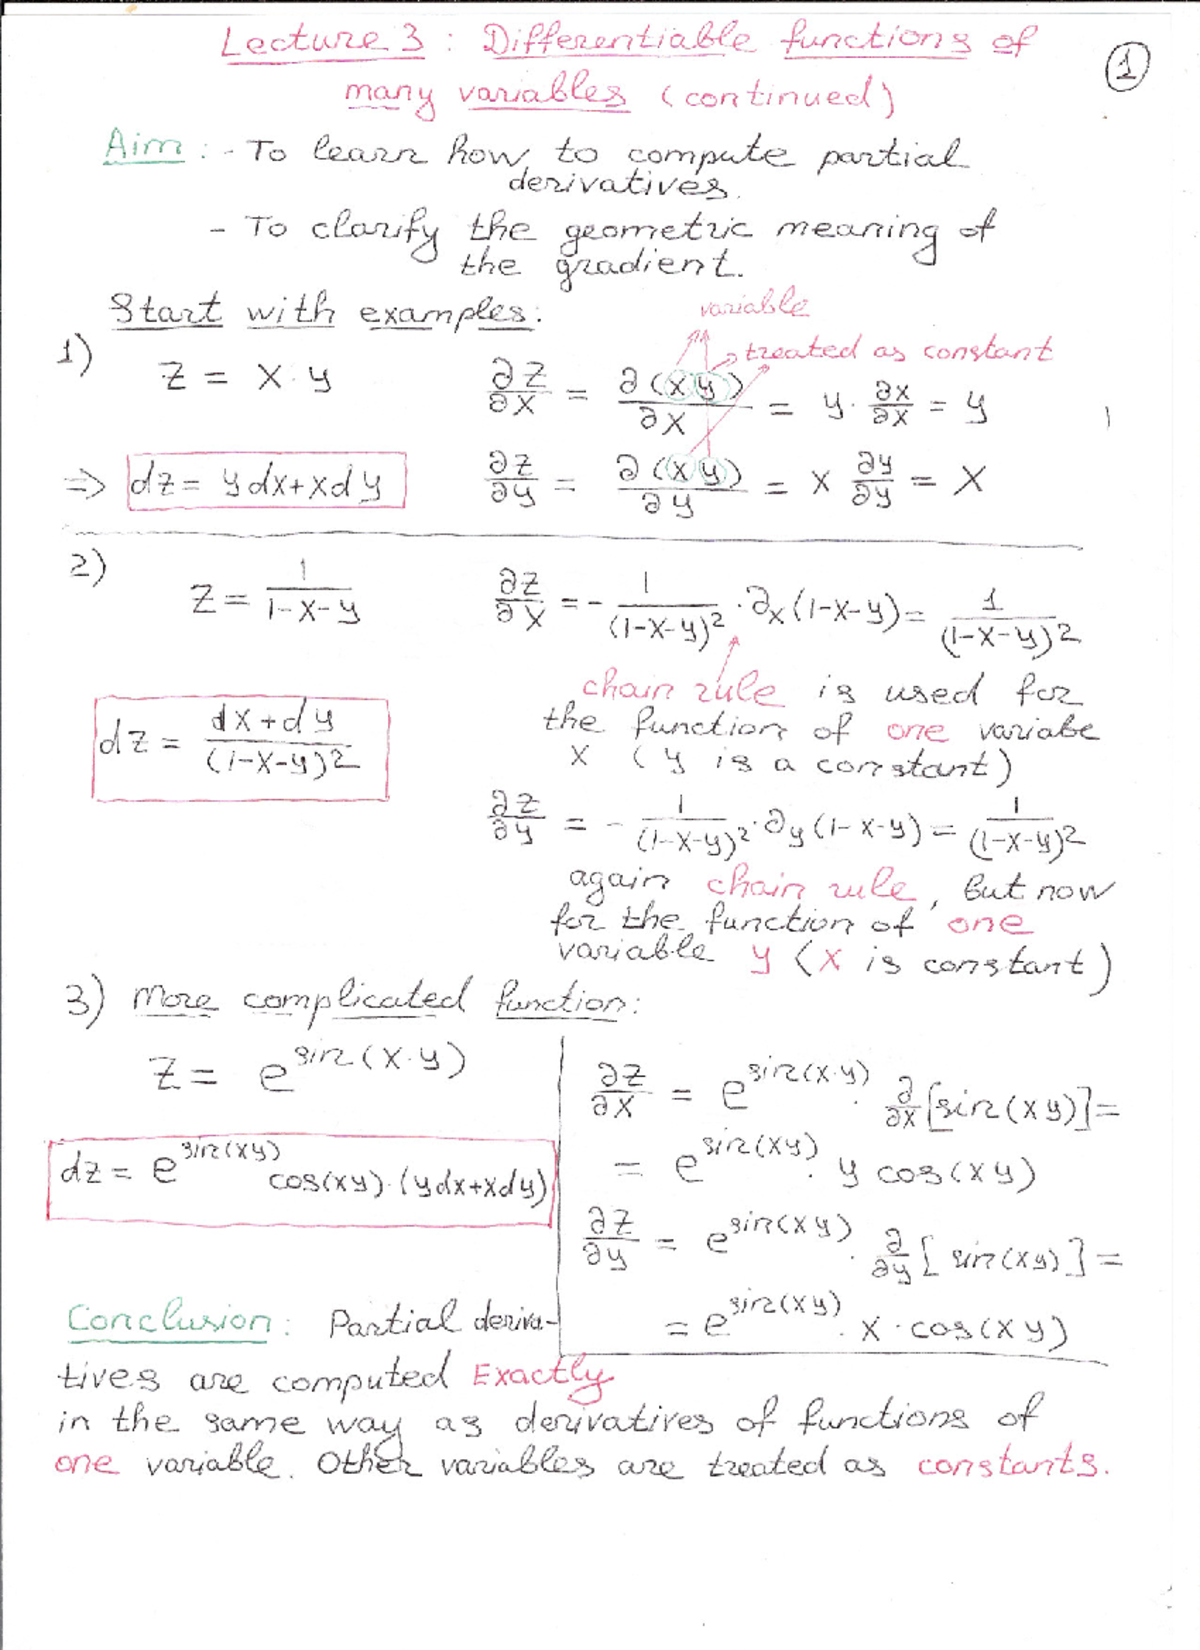 Lecture 3 : Differentiable functions of
many variables (continued)
1
Aim : - To learn how to compute partial
derivatives.
- To clarify the geometric meaning of
the gradient.
Start with examples:
variable
treated as constant
1)
Z = X·y
∂Z/∂X = ∂(Xy)/∂X = y·∂X/∂X = y
⇒ dz = ydx+xdy
∂Z/∂y = ∂(Xy)/∂y = X ∂y/∂y = X
2)
Z = 1/(1-X-y)
∂Z/∂X = - 1/(1-X-y)² · ∂x(1-X-y) = 1/(1-X-y)²
chain rule is used for
the function of one variabe
X (y is a constant)
dz = (dX+dy)/(1-X-y)²
∂Z/∂y = - 1/(1-X-y)² · ∂y(1-X-y) = 1/(1-X-y)²
again chain rule, but now
for the function of one
variable y (X is constant)
3) More complicated function:
Z = e^sin(X·y)
∂Z/∂X = e^sin(X·y) · ∂/∂X [sin(Xy)] =
= e^sin(Xy) · y cos(Xy)
dz = e^sin(Xy) cos(Xy)·(ydx+xdy)
∂Z/∂y = e^sin(Xy) · ∂/∂y [sin(Xy)] =
= e^sin(Xy) · X·cos(Xy)
Conclusion: Partial deriva-
tives are computed Exactly
in the same way as derivatives of functions of
one variable. Other variables are treated as constants.